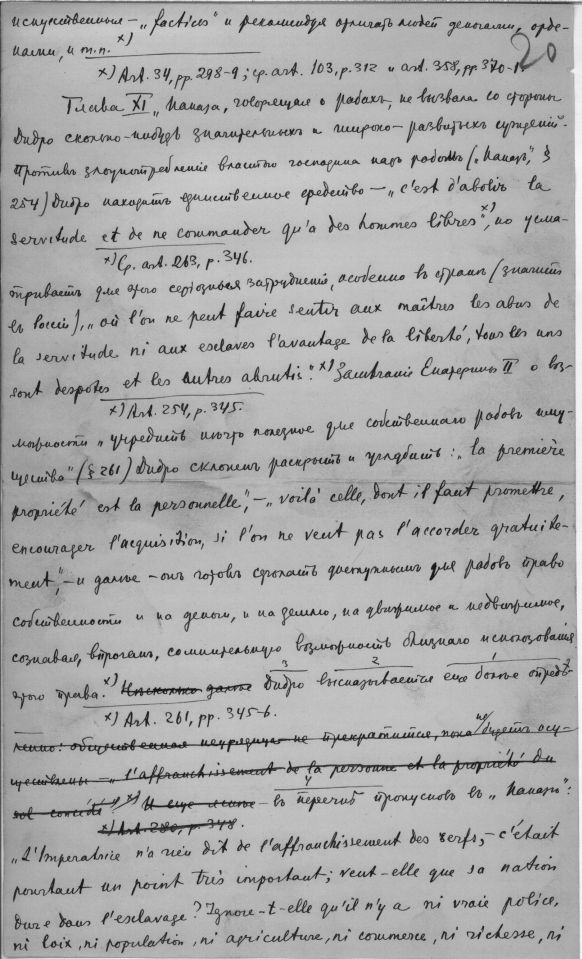 искусственные – „factices" и рекомендуя отличать людей деньгами, орде-
нами, и т.п. x)
20
x) Art. 34, pp. 298-9; ср. art. 103, p. 312 и art. 358, pp 370-1.
Глава XI „Наказа", говорящая о рабахъ, не вызвала со стороны
Дидро сколько-нибудь значительныхъ и широко-развитыхъ сужденій.
Противъ злоупотребленія властью господина надъ рабомъ („Наказъ", §
254) Дидро находитъ единственное средство – „c'est d'abolir la
servitude et de ne commander qu'à des hommes libres" x), но усма-
x) Ср. art. 263, p. 346.
триваетъ для этого серіозныя затрудненія, особенно въ странѣ (значитъ
въ Россіи), „où l'on ne peut faire sentir aux maîtres les abus de
la servitude ni aux esclaves l'avantage de la liberté, tous les uns
sont despotes et les autres abrutis". x) Замѣчаніе Екатерины II о воз-
x) Art. 254, p. 345.
можности „учредить нѣчто полезное для собственнаго рабовъ иму-
щества" (§ 261) Дидро склоненъ раскрыть и углубить: „la première
propriété est la personnelle", – „voilà celle, dont il faut promettre,
encourager l'acquisition, si l'on ne veut pas l'accorder gratuite-
ment", – и далѣе – онъ готовъ сдѣлать доступнымъ для рабовъ право
собственности и на деньги, и на землю, на движимое и недвижимое,
сознавая, впрочемъ, сомнительную возможность близкаго использованія
3 2 1
этого права. x) Нѣсколько далѣе Дидро высказывается еще болѣе опредѣ-
x) Art. 261, pp. 345-6.
ленно: общественная неурядица не прекратится, пока не будетъ осу-
ществлены – „l'affranchissement de la personne et la propriété du
sol concédé" x) И еще яснѣе – въ перечнѣ пропусковъ въ „Наказѣ":
4
x) Art. 280, p. 348.
„L'Imperatrice n'a rien dit de l'affranchissement des serfs, – c'était
pourtant un point très important; veut-elle que sa nation
dure dans l'esclavage? Ignore-t-elle qu'il n'y a ni vraie police,
ni loix, ni population, ni agriculture, ni commerce, ni richesse, ni